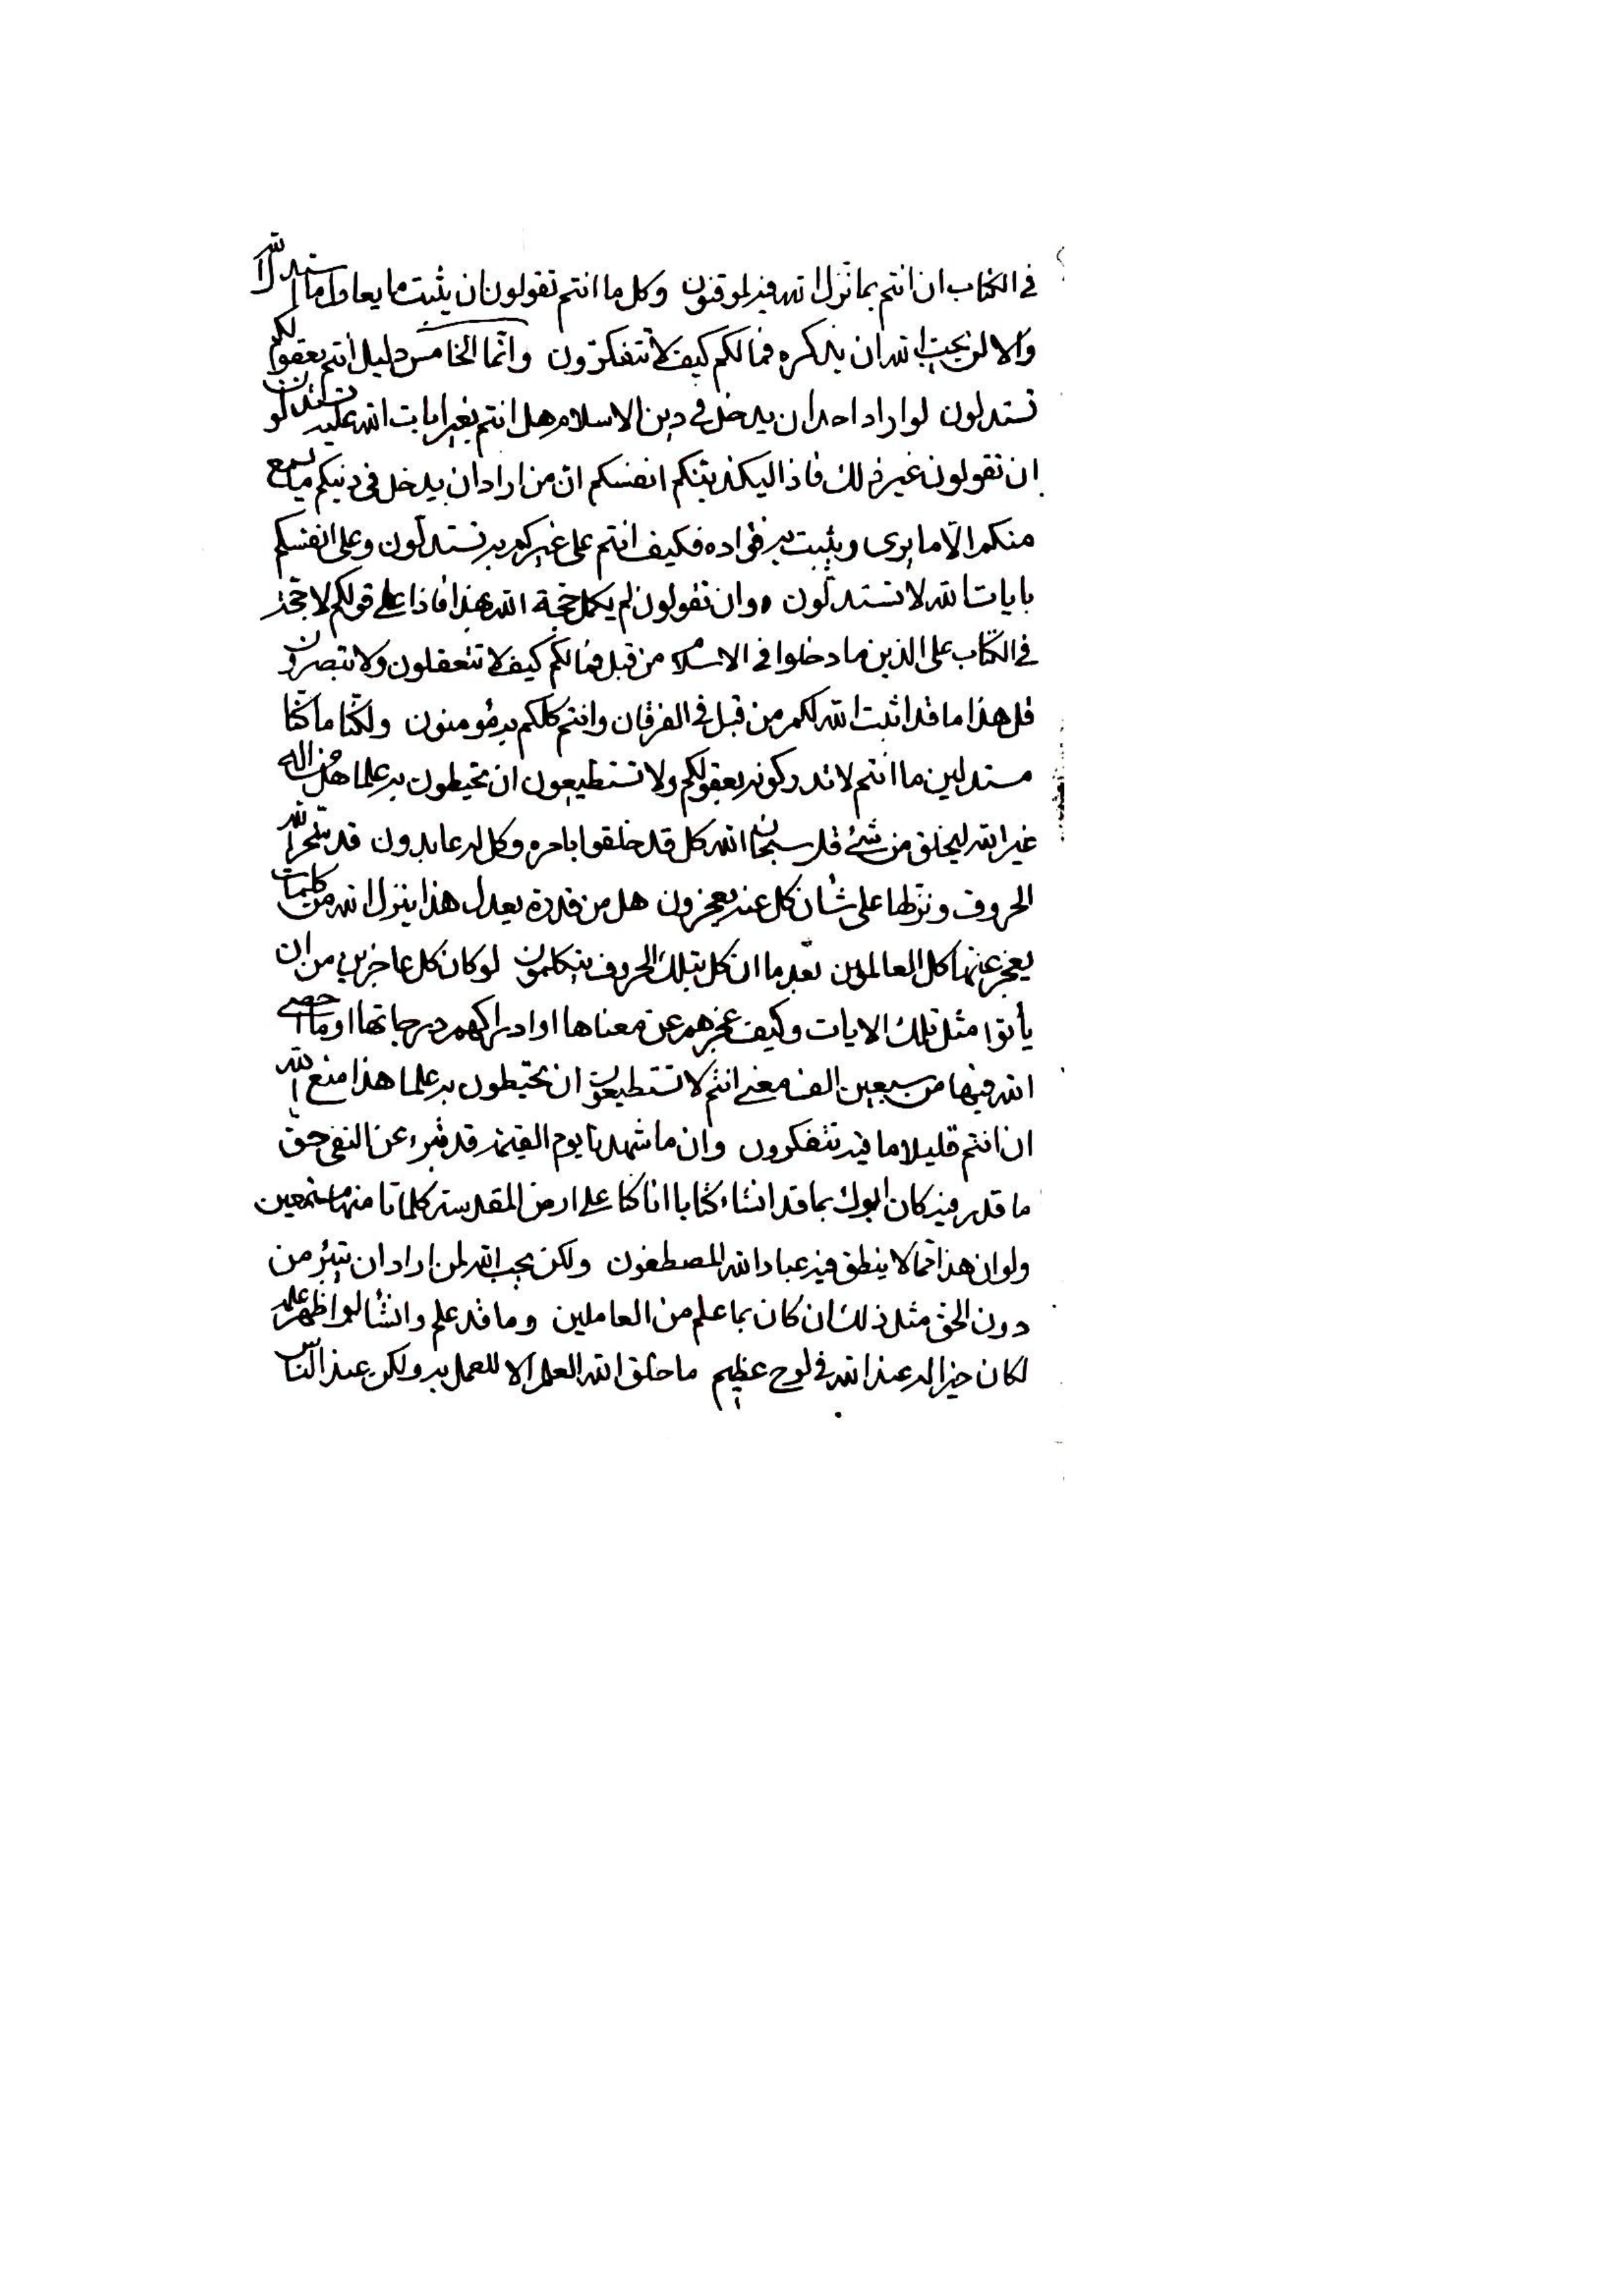 في الكتاب ان انتم بما نزل الله فيه لموقنون وكل ما انتم تقولون ان يثبت ما يعادل ما استدل الله
والا لن يحب الله ان يذكره فما لكم كيف لا تتفكرون وانما الخامس دليل انتم بعقولكم
تستدلون لو اراد احد ان يدخل في دين الاسلام هل انتم بغير ايات الله عليه تستدلون لو
ان تقولون غير ذلك فاذا ليكذبنكم انفسكم ان من اراد ان يدخل في دينكم ما يسمع
منكم الا ما يرى ويثبت به فؤاده فكيف انتم على غيركم به تستدلون وعلى انفسكم
بايات الله لا تستدلون وان تقولون لم يكمل حجة الله هذا فاذا على قولكم لا حجة
في الكتاب على الذين ما دخلوا في الاسلام من قبل فما لكم كيف لا تتعقلون ولا تبصرون
قل هذا ما قد اثبت الله لكم من قبل في الفرقان وانتم كلكم به مؤمنون ولكنا ما كنا
مستدلين ما انتم لا تدركونه بعقولكم ولا تستطيعون ان تحيطون به علما هل من اله
غير الله ليخلق من شئ قل سبحان الله كل قد خلقوا بامره وكل له عابدون قد سخر الله
الحروف ونزلها على شأن كل عنه يعجزون هل من قدرة يعدل هذا ينزل الله من كلمات
يعجز عنها كل العالمون بعد ما ان كل بتلك الحروف يتكلمون لو كان كل عاجزين من ان
يأتوا مثل تلك الايات وكيف عجزهم عن معناها او ادراكهم درجاتها او ما احصى
الله فيها من سبعين الف معنى انتم لا تستطيعون ان تحيطون به علما هذا منع الله
ان انتم قليلا ما فيه تتفكرون وان ما شهدنا يوم القيمة قد تبرء عن النفي حق
ما قدر فيه كان ابوك بما قد انشاء كتابا انا كنا على ارض المقدسة كلماتا منها مستمعين
ولو ان هذا مما لا ينطق فيه عباد الله المصطفون ولكن يحب الله لمن اراد ان يتبرء من
دون الحق مثل ذلك ان كان بما علم من العاملين وما قد علم وانشأ لو اظهر علمه
لكان خيرا له عند الله في لوح عظيم ما خلق الله العلم الا للعمل به ولكن عند الناس